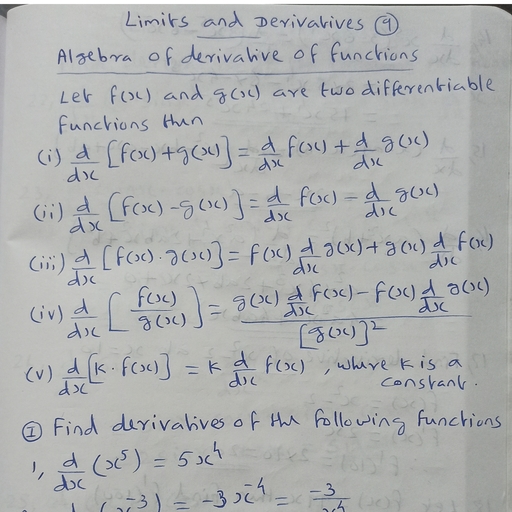 Limits and Derivatives ⑨
Algebra of derivative of functions
Let f(x) and g(x) are two differentiable
functions then
(i) d/dx [f(x)+g(x)] = d/dx f(x) + d/dx g(x)
(ii) d/dx [f(x)-g(x)] = d/dx f(x) - d/dx g(x)
(iii) d/dx [f(x)·g(x)] = f(x) d/dx g(x) + g(x) d/dx f(x)
(iv) d/dx [f(x)/g(x)] = (g(x) d/dx f(x) - f(x) d/dx g(x))/[g(x)]²
(v) d/dx [k·f(x)] = k d/dx f(x), where k is a
constant.
Ⓘ Find derivatives of the following functions
1, d/dx (x⁵) = 5x⁴
(x⁻³) = -3x⁻⁴ = -3/x⁴